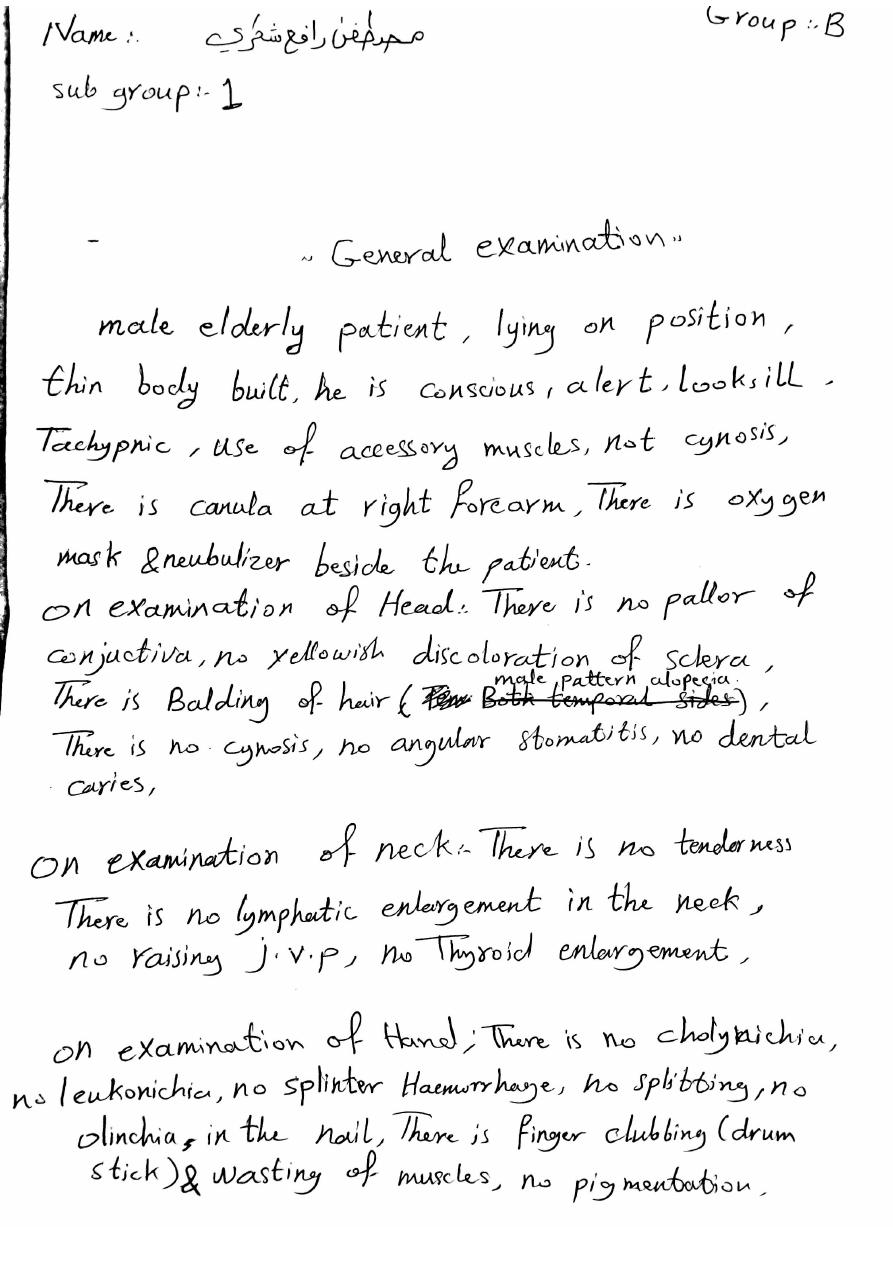 Name :. مصطفى رافع شكري
Group :- B
sub group :- 1
-
" General examination "
male elderly patient , lying on position ,
thin body built, he is conscious, alert, looks ill .
Tachypnic , use of accessory muscles, not cynosis,
There is canula at right forearm, There is oxygen
mask & neubulizer beside the patient .
on examination of Head:. There is no pallor of
conjuctiva, no yellowish discoloration of sclera ,
male pattern alopecia .
There is Balding of hair ( Both temporal sides ) ,
There is no cynosis, no angular stomatitis, no dental
caries,
on examination of neck:- There is no tenderness
There is no lymphatic enlargement in the neck ,
no raising j.v.p, no Thyroid enlargement ,
on examination of Hand ; There is no
no leukonichia, no splinter Haemorrhage, no splitting, no
in the nail, There is finger clubbing (drum
stick) & wasting of muscles, no pigmentation .